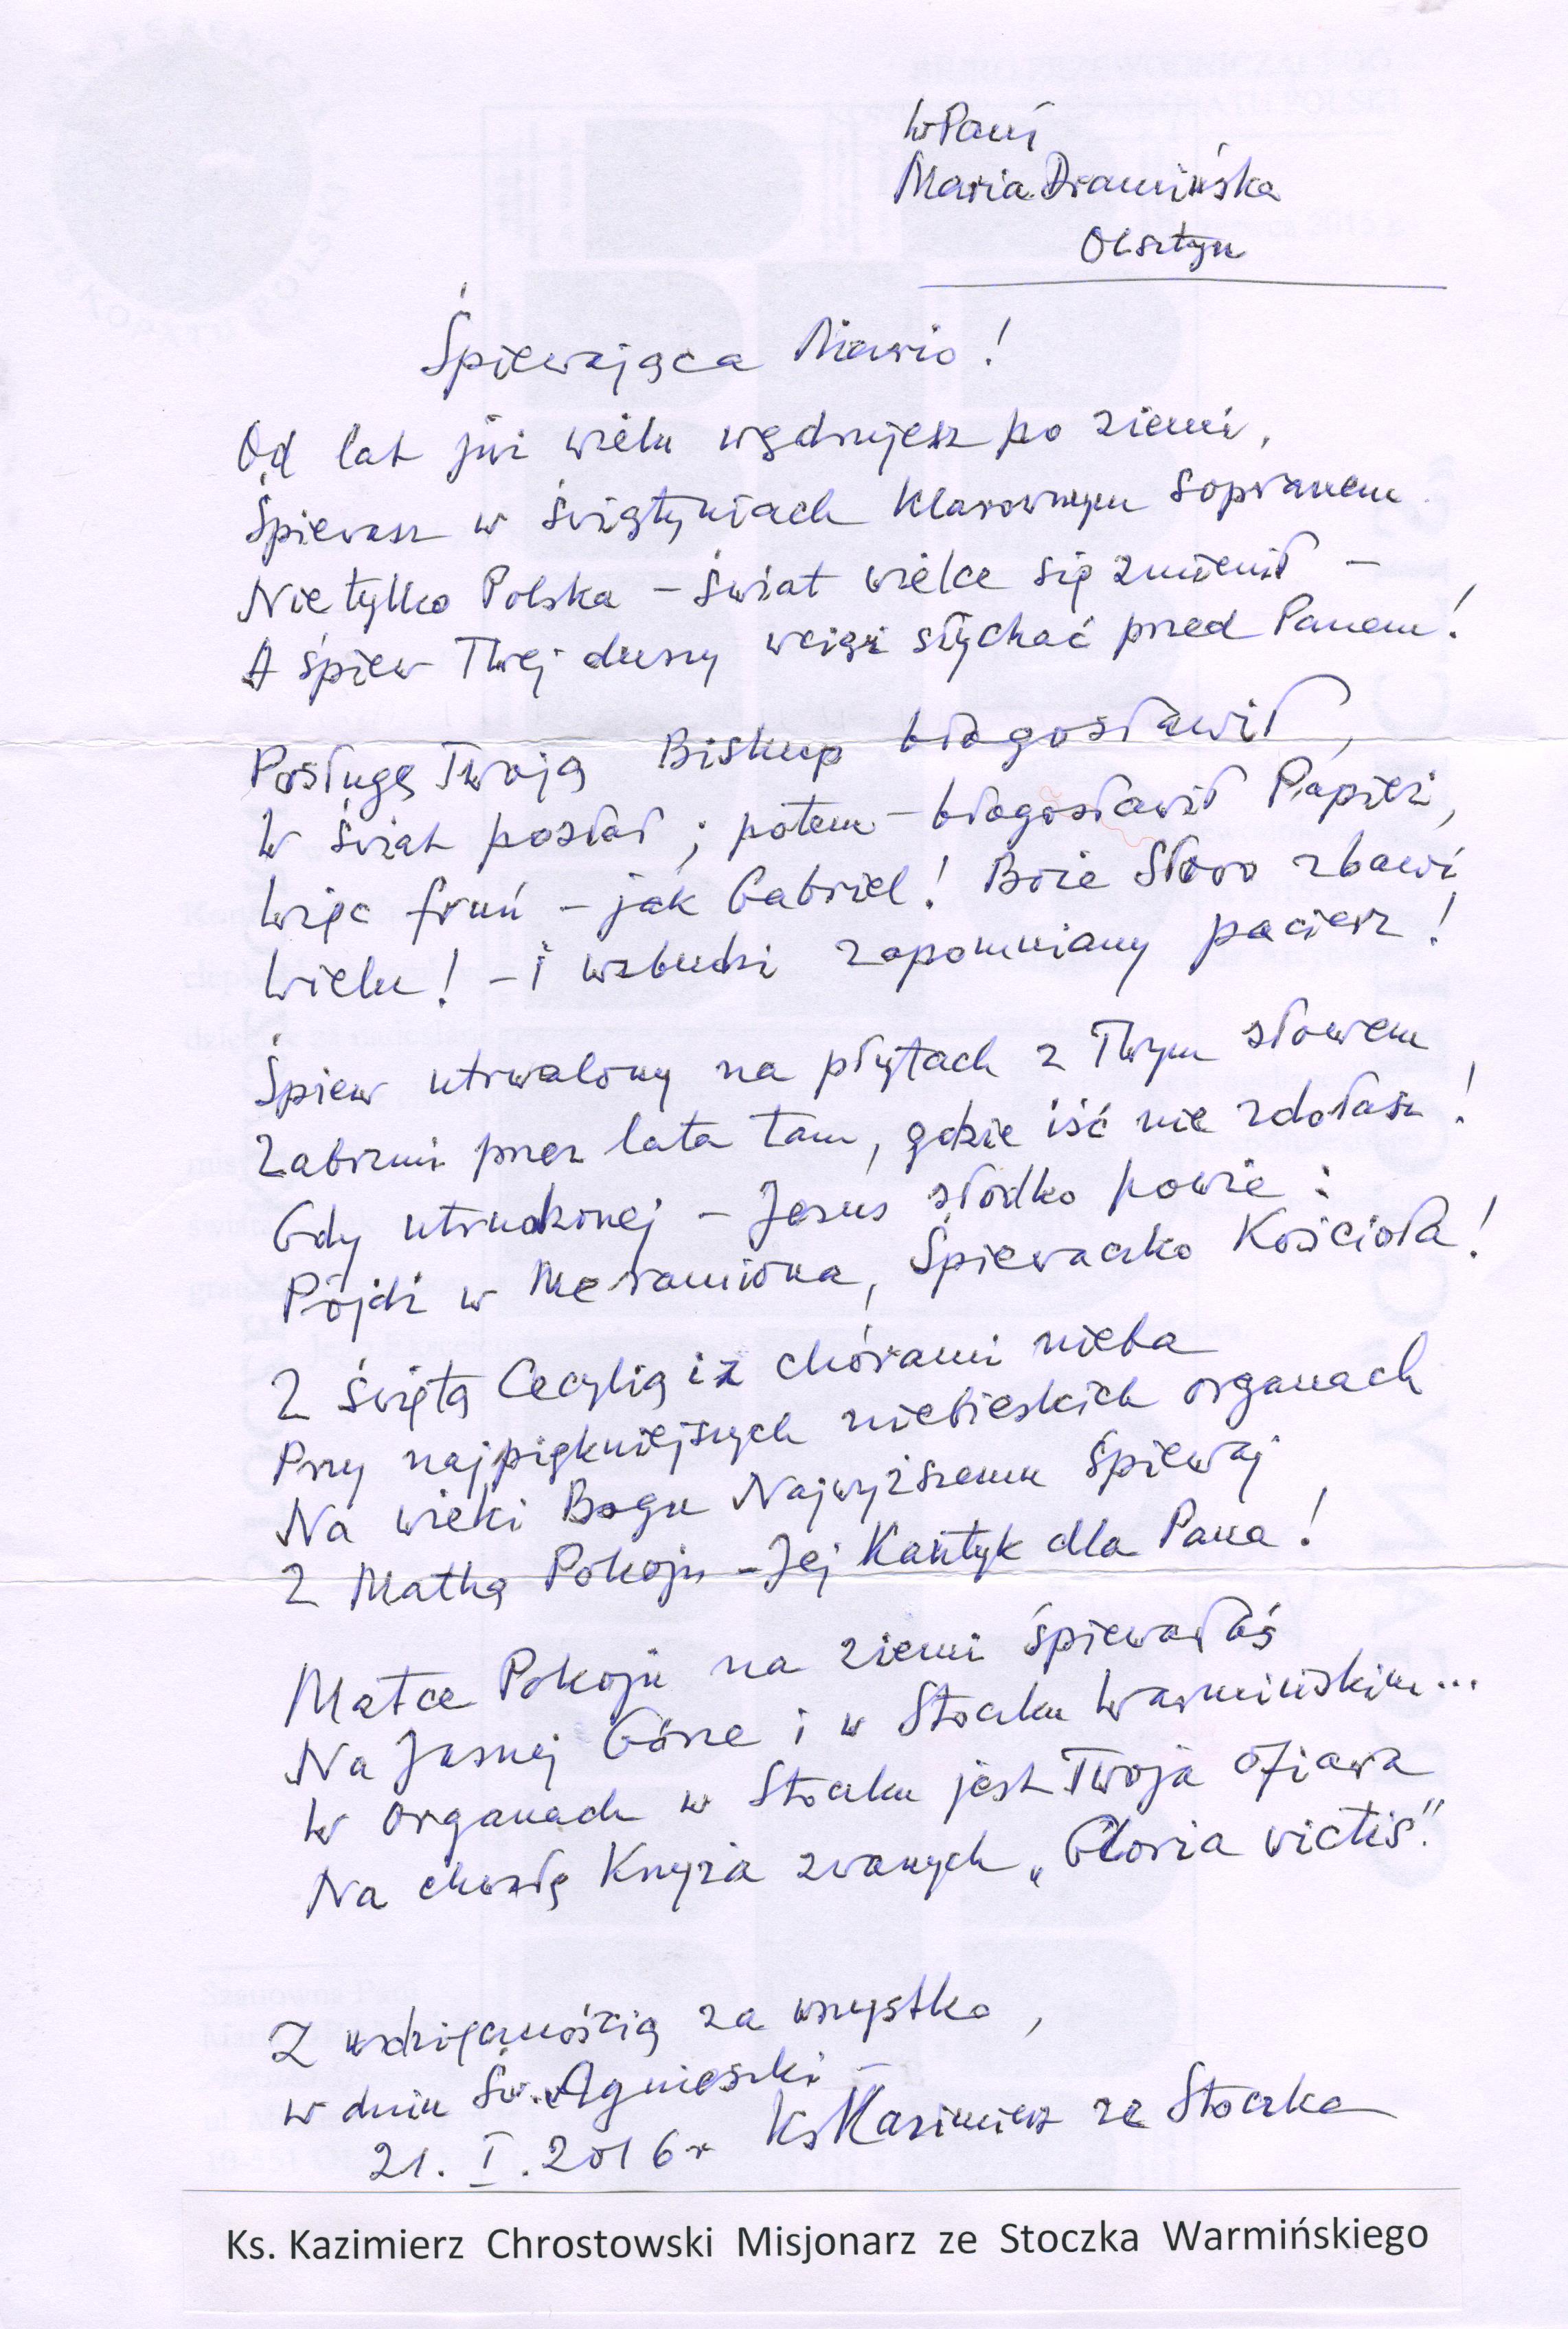 WPani
Maria Dramińska
Olsztyn
Śpiewająca Mario!
Od lat już wielu wędrujesz po ziemi,
Śpiewasz w świątyniach klarownym sopranem
Nie tylko Polska – świat wielce się zmienił –
A śpiew Twej duszy wciąż słychać przed Panem!
Posługę Twoją Biskup błogosławił,
W świat posłał; potem – błogosławił Papież,
Więc fruń – jak Gabriel! Boże Słowo zbawi
Wielu! – i wzbudzi zapomniany pacierz!
Śpiew utrwalony na płytach z Twym słowem
Zabrzmi przez lata tam, gdzie iść nie zdołasz!
Gdy utrudzonej – Jezus słodko powie:
Pójdź w Me ramiona, Śpiewaczko Kościoła!
Z świętą Cecylią i z chórami nieba
Przy najpiękniejszych niebieskich organach
Na wieki Bogu Najwyższemu śpiewaj
Z Matką Pokoju – Jej Kantyk dla Pana!
Matce Pokoju na ziemi śpiewałaś
Na Jasnej Górze i w Stoczku Warmińskim...
W organach w Stoczku jest Twoja ofiara
Na chwałę Krzyża zwanych „Gloria victis”.
Z wdzięcznością za wszystko,
w dniu Św. Agnieszki –
21. I. 2016 r Ks Kazimierz ze Stoczka
Ks. Kazimierz Chrostowski Misjonarz ze Stoczka Warmińskiego